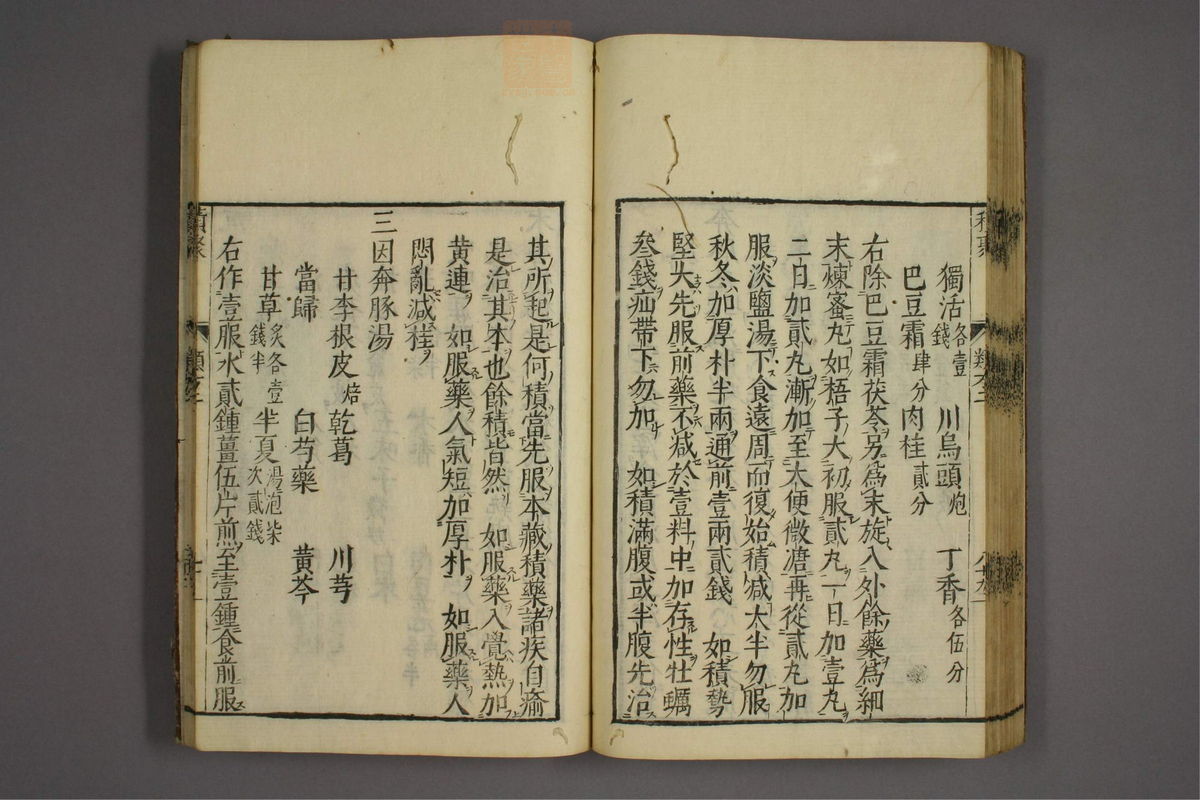 獨活各壹錢 川烏頭炮 丁香各伍分
巴豆霜肆分 肉桂貳分
右除巴豆霜茯苓另爲末旋入外餘藥爲細
末煉蜜丸如梧子大初服貳丸一日加壹丸
二日加貳丸漸加至大便微溏再從貳丸加
服淡鹽湯下食遠周而復始積减大半勿服
秋冬加厚朴半兩通前壹兩貳錢 如積勢
堅大先服前藥不减於壹料中加存性牡蠣
叄錢疝帶下勿加 如積滿腹或半腹先治
其所起是何積當先服本藏積藥諸疾自瘉
是治其本也餘積皆然 如服藥人覺熱加
黄連 如服藥人氣短加厚朴 如服藥人
悶亂减桂
三因奔豚湯
甘李根皮焙 乾葛 川芎
當歸 白芍藥 黄芩
甘草炙各壹錢半 半夏湯泡柒次貳錢
右作壹服水貳鍾薑伍片煎至壹鍾食前服